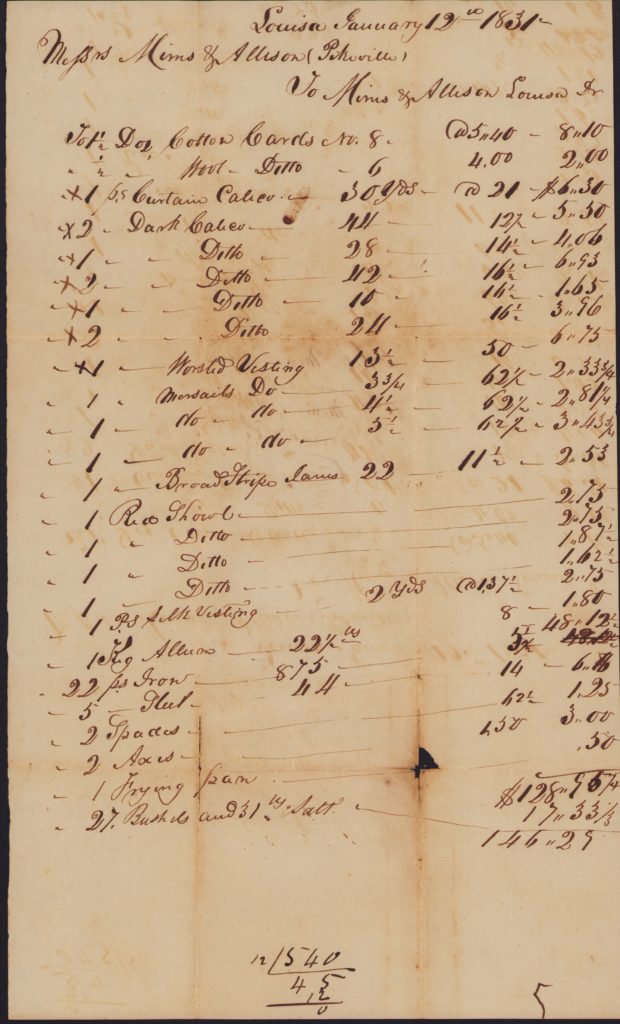 Louisa January 12th 1831
Messrs Mims & Allison (Pikeville)
To Mims & Allison Louisa Dr
To 1½ Doz Cotton Cards No. 8. @ 5"40 - 8"10
" ½ " Wool - Ditto - 6 4.00 2"00
x1 ps Curtain Calico - 30 Yds - @ 21 - $6"30
x2 - Dark Calico - 44 - 12½ - 5"50
x1 - " Ditto - 28 - 14½ - 4"06
x2 " Ditto - 42 - 16½ - 6"93
x1 " Ditto - 10 - 16½ - 1"65
x2 " Ditto - 24 - 16½ - 3"96
x1 - Worsted Vesting 13½ - 50 - 6"75
" 1 " Mersails Do - 3¾ - 62½ - 2"33¾
" 1 - do - do - 4½ - 62½ - 2"81¼
" 1 - do - do - 5½ - 62½ - 3"43¾
" 1 - Broad Stripe Janes 22 - 11½ - 2"53
" 1 Red Showl 2"75
" 1 " Ditto 2"75
" 1 " Ditto 1"87½
" 1 " Ditto 1"62½
" 1 Ps Silk Vesting 2 Yds @ 1,37½ 2"75
" 1 Keg Allum - 22½ lbs 8 - 1"80
22 ps Iron - 875 - 5½ 48"12½
- 5 - Steel - 44 - 14 - 6"16
- 2 Spades - 62½ 1.25
" 2 Axes - 1,50 3"00
- 1 Frying pan .50
$128"95¼
" 27. Bushels and 31 lbs. Salt. - 17"33⅓
146"29
12 ) 540
4 5
,2
0
5